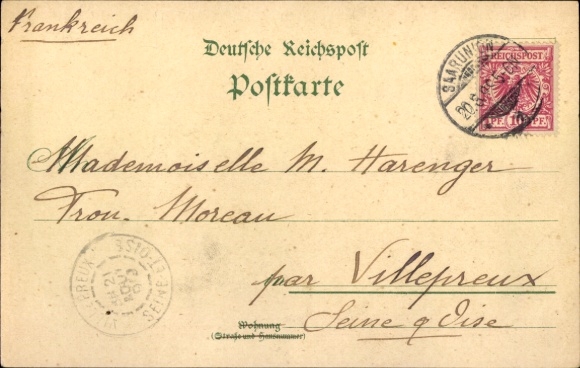 Frankreich
Deutsche Reichspost
Postkarte
SAARUNION
REICHSPOST
PF. 10 PF.
Mademoiselle M. Harenger
Trou-Moreau
par Villepreux
Seine & Oise
Wohnung
(Straße und Hausnummer)
VILLEPREUX
SEINE-ET-OISE
21